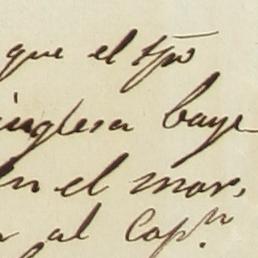 que el tpo
inglesa baya
en el mar,
al Capn